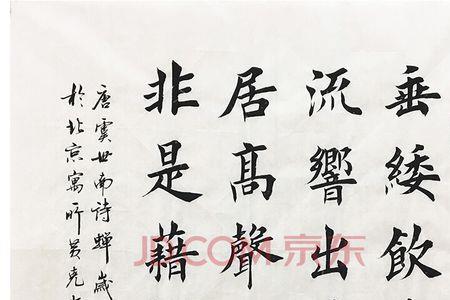 垂緌飲
流響出
居高聲
非是藉
唐虞世南詩蟬歲
於北京寓所吳克
JD.COM 京东